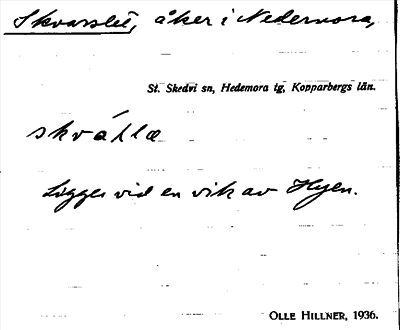 åker i Nedernora,
St. Skedvi sn, Hedemora tg, Kopparbergs län.
Ligger vid en vik av Hyen.
OLLE HILLNER, 1936.